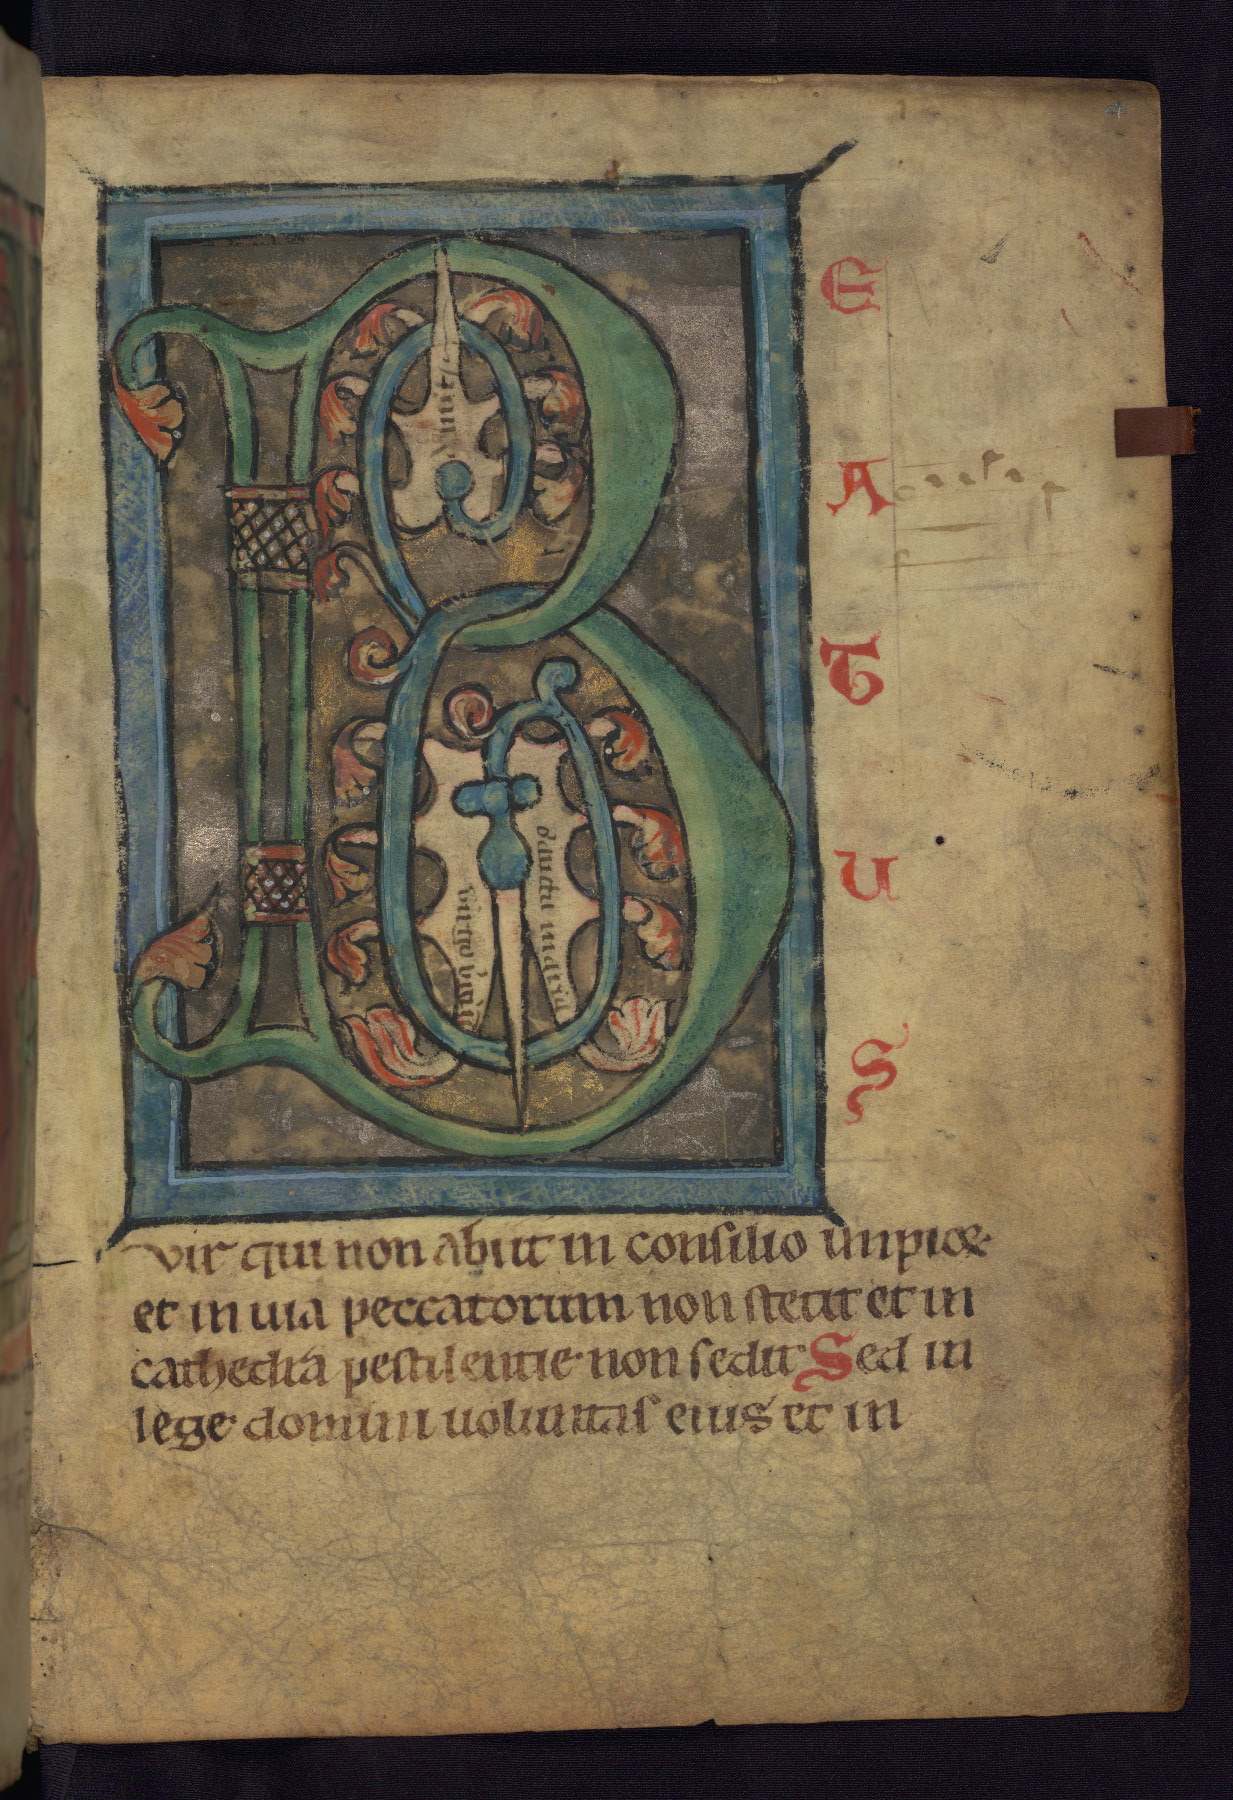 4
B
E
A
T
U
S
vir qui non abiit in consilio impioꝝ
et in uia peccatorum non stetit et in
cathedra pestilentie non sedit Sed in
lege domini uoluntas eius et in
o dulcis maria
virgo